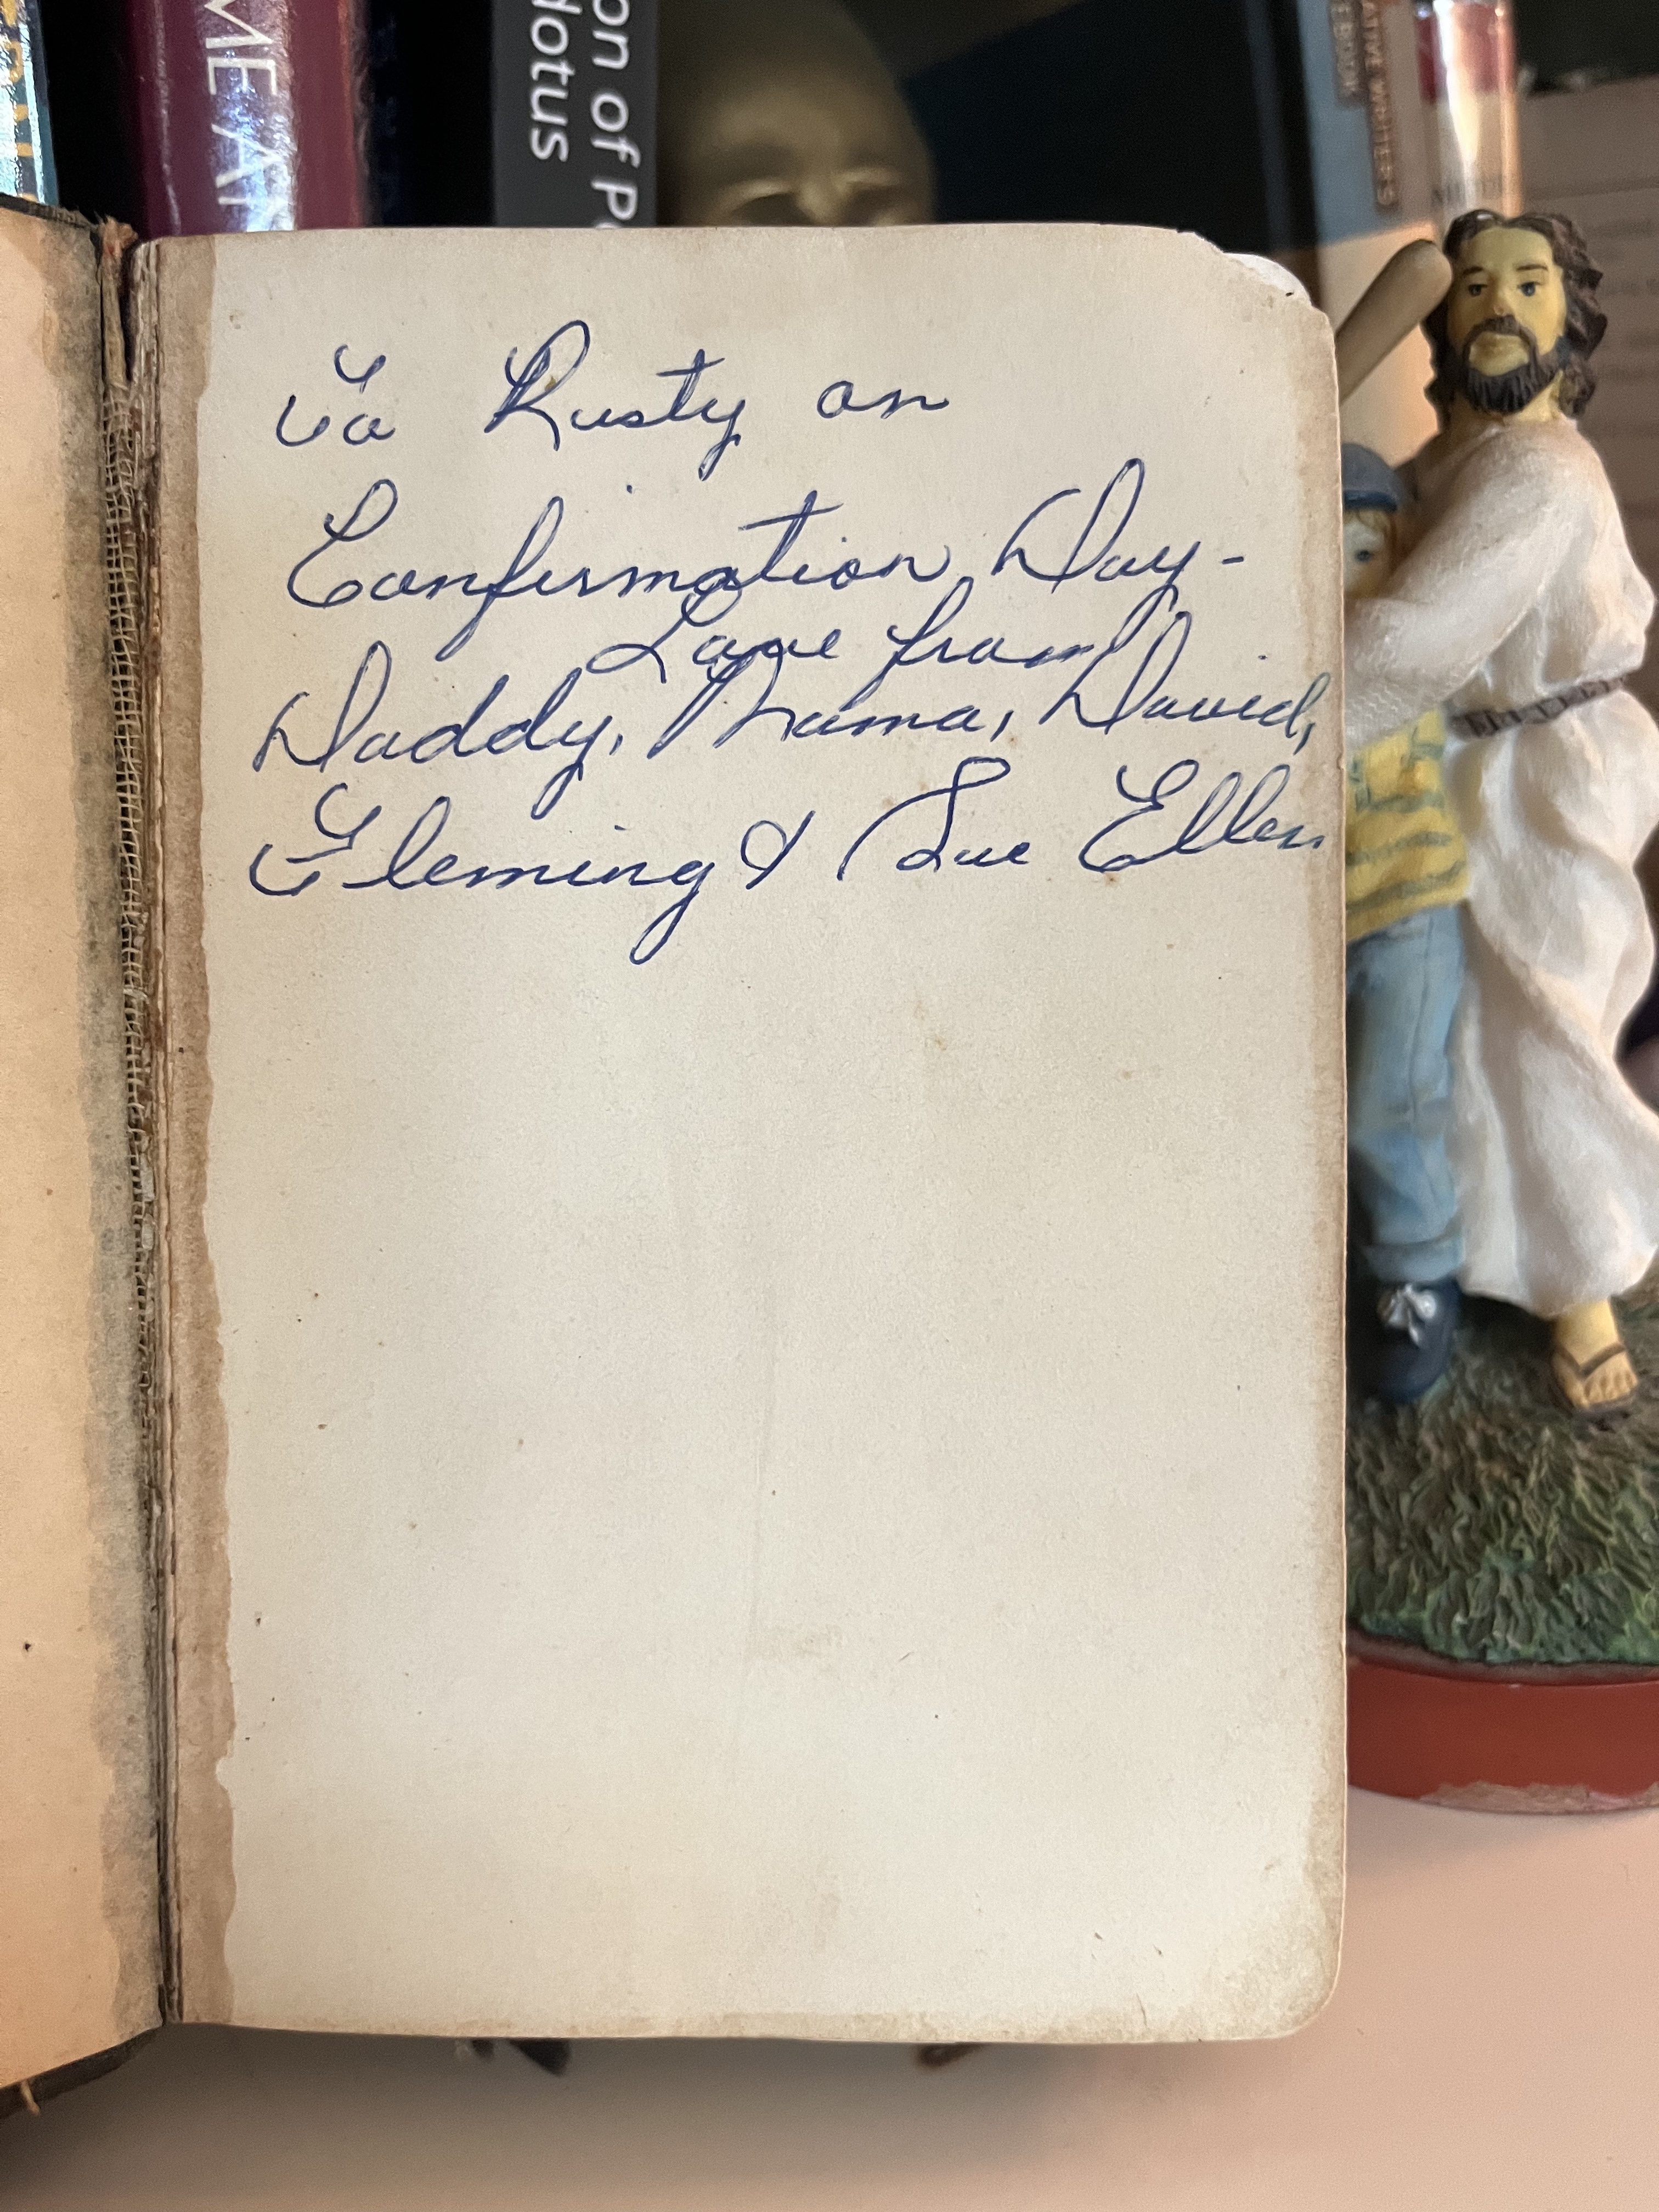 ME AN
on of P
dotus
ATIVE WRITER'S
EBOOK
To Rusty on
Confirmation Day-
Love from
Daddy, Mama, David,
Fleming & Sue Ellen